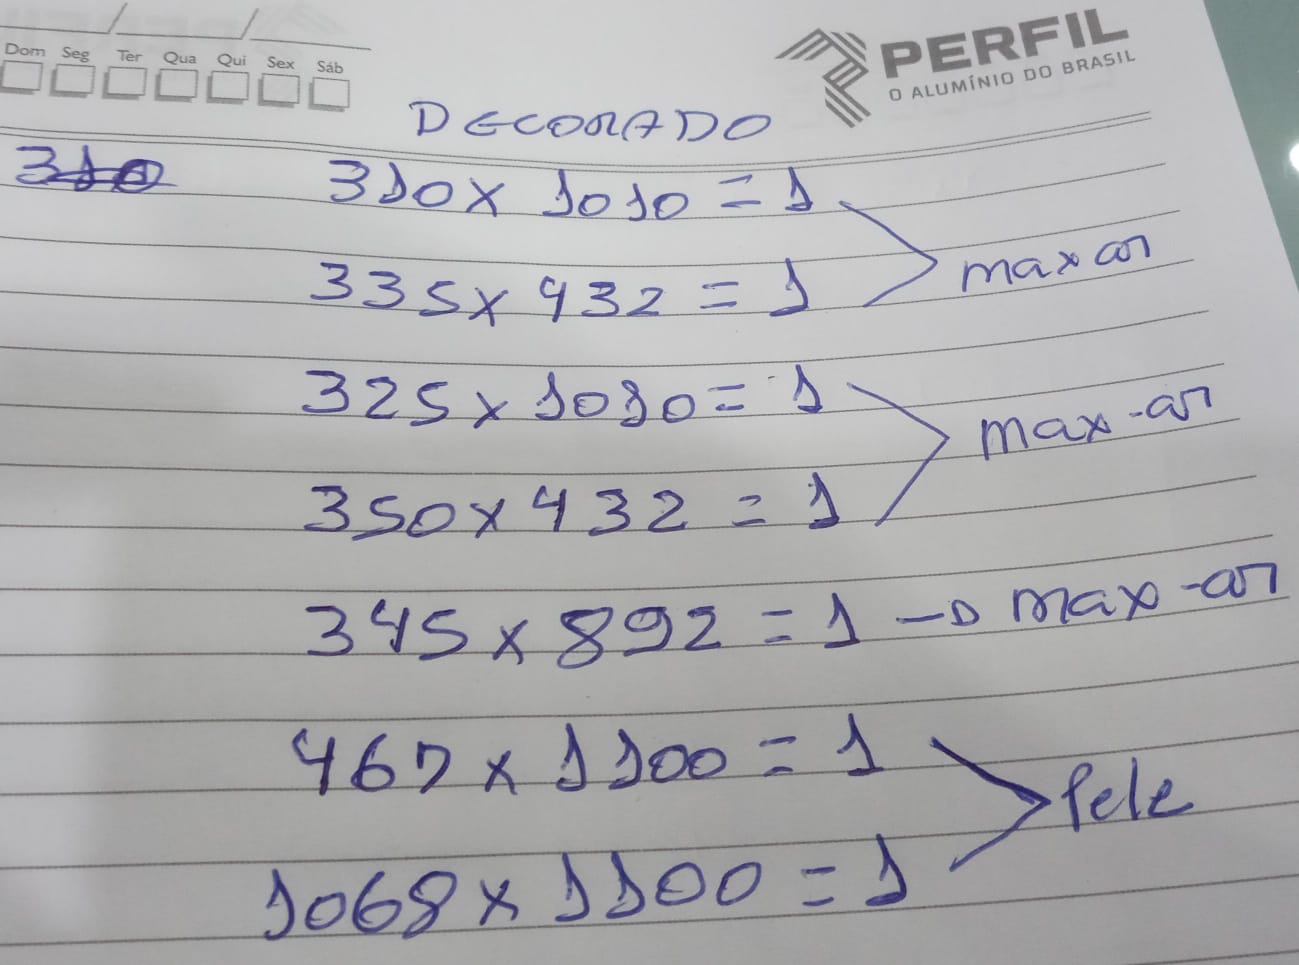 Dom Seg Ter Qua Qui Sex Sáb
PERFIL
O ALUMÍNIO DO BRASIL
DECORADO
310
310 x 1010 = 1
335 x 432 = 1
max ar
325 x 1010 = 1
350 x 432 = 1
max-ar
345 x 892 = 1 → max-ar
467 x 1100 = 1
1068 x 1100 = 1
Pele